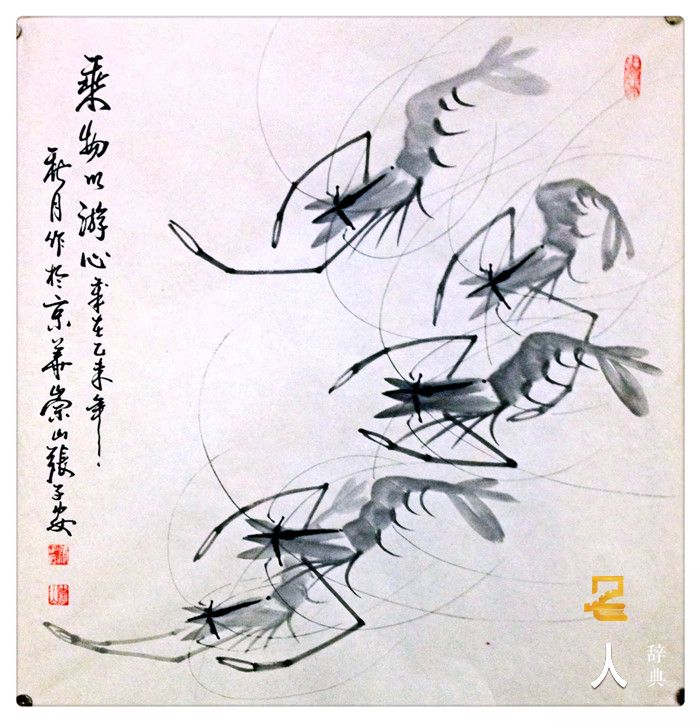 乘物以游心歲在乙未年
月作於京華崇山張子安
名人
辞典